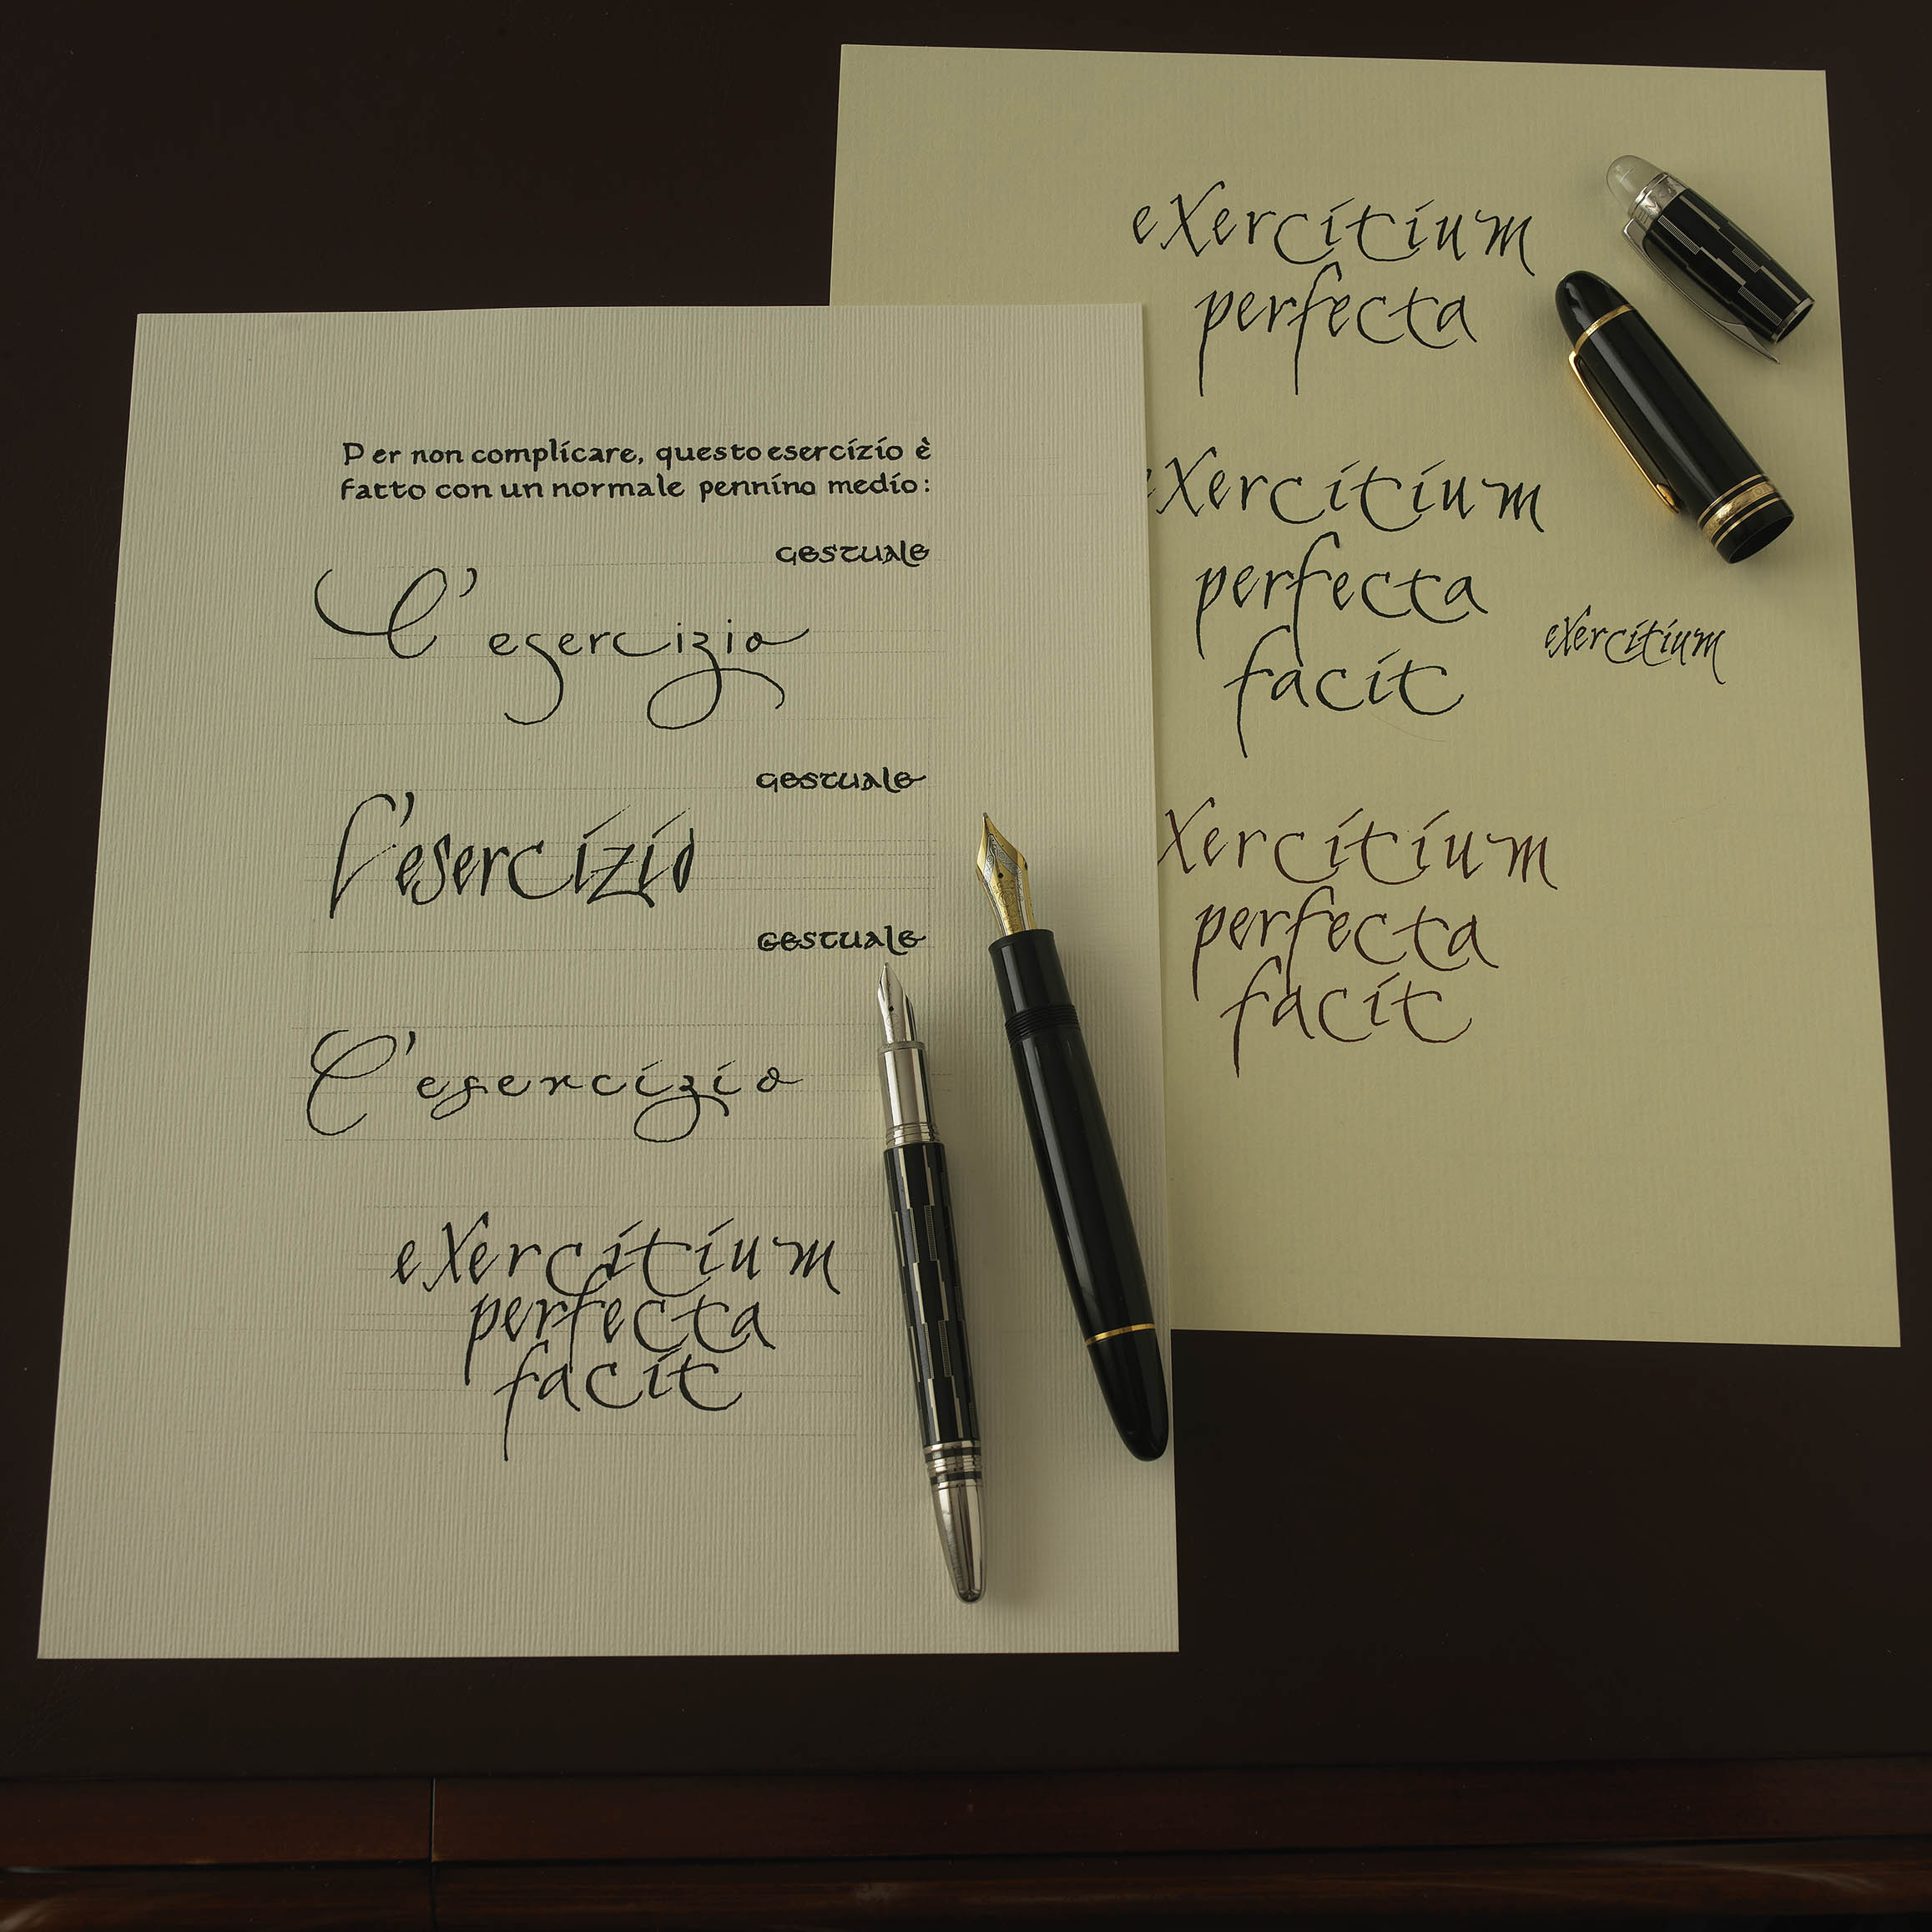 Per non complicare, questo esercizio è
fatto con un normale pennino medio:
GESTUALE
l'esercizio
GESTUALE
l'esercizio
GESTUALE
l'esercizio
eXercitium
perfecta
facit
eXercitium
perfecta
eXercitium
perfecta
facit
eXercitium
Xercitium
perfecta
facit